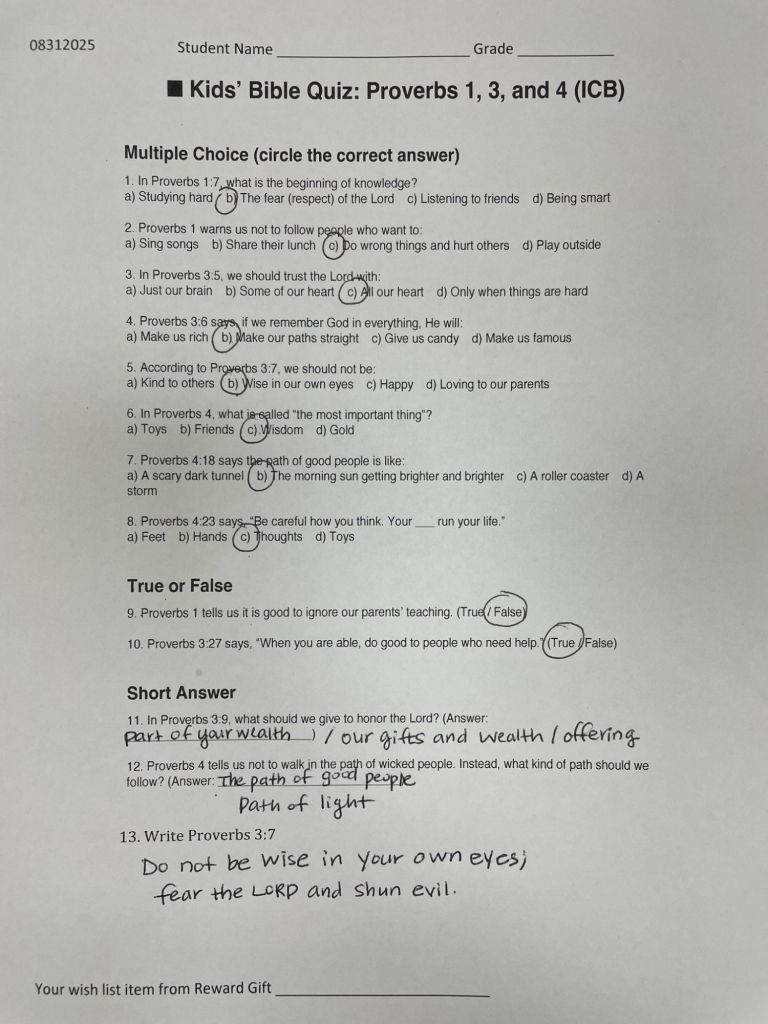 08312025
Student Name ____________________ Grade __________
■ Kids' Bible Quiz: Proverbs 1, 3, and 4 (ICB)
Multiple Choice (circle the correct answer)
1. In Proverbs 1:7, what is the beginning of knowledge?
a) Studying hard b) The fear (respect) of the Lord c) Listening to friends d) Being smart
2. Proverbs 1 warns us not to follow people who want to:
a) Sing songs b) Share their lunch c) Do wrong things and hurt others d) Play outside
3. In Proverbs 3:5, we should trust the Lord with:
a) Just our brain b) Some of our heart c) All our heart d) Only when things are hard
4. Proverbs 3:6 says, if we remember God in everything, He will:
a) Make us rich b) Make our paths straight c) Give us candy d) Make us famous
5. According to Proverbs 3:7, we should not be:
a) Kind to others b) Wise in our own eyes c) Happy d) Loving to our parents
6. In Proverbs 4, what is called “the most important thing”?
a) Toys b) Friends c) Wisdom d) Gold
7. Proverbs 4:18 says the path of good people is like:
a) A scary dark tunnel b) The morning sun getting brighter and brighter c) A roller coaster d) A
storm
8. Proverbs 4:23 says, “Be careful how you think. Your ___ run your life.”
a) Feet b) Hands c) Thoughts d) Toys
True or False
9. Proverbs 1 tells us it is good to ignore our parents' teaching. (True / False)
10. Proverbs 3:27 says, “When you are able, do good to people who need help.” (True / False)
Short Answer
11. In Proverbs 3:9, what should we give to honor the Lord? (Answer:
part of your wealth ) / our gifts and wealth / offering
12. Proverbs 4 tells us not to walk in the path of wicked people. Instead, what kind of path should we
follow? (Answer: The path of good people
Path of light
13. Write Proverbs 3:7
Do not be wise in your own eyes;
fear the LORD and shun evil.
Your wish list item from Reward Gift ____________________